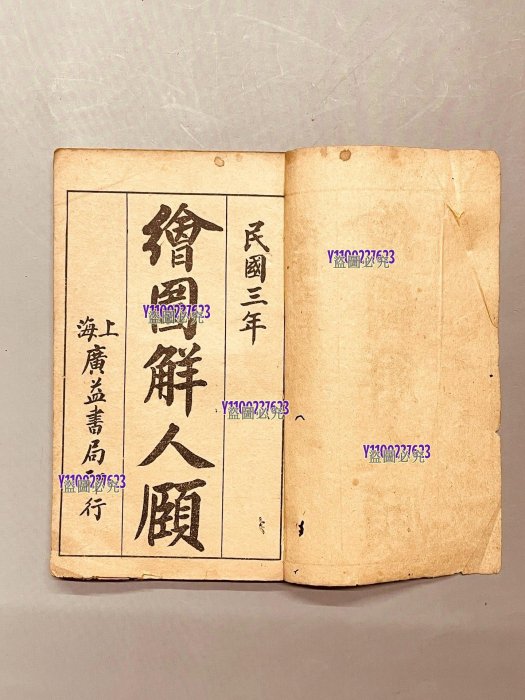 民國三年
繪圖解人頤
上海廣益書局
行
Y1100237623
盜圖必究
Y1100237623
盜圖必究
Y1100237623
盜圖必究
Y1100237623
盜圖必究
Y1100237623
盜圖必究